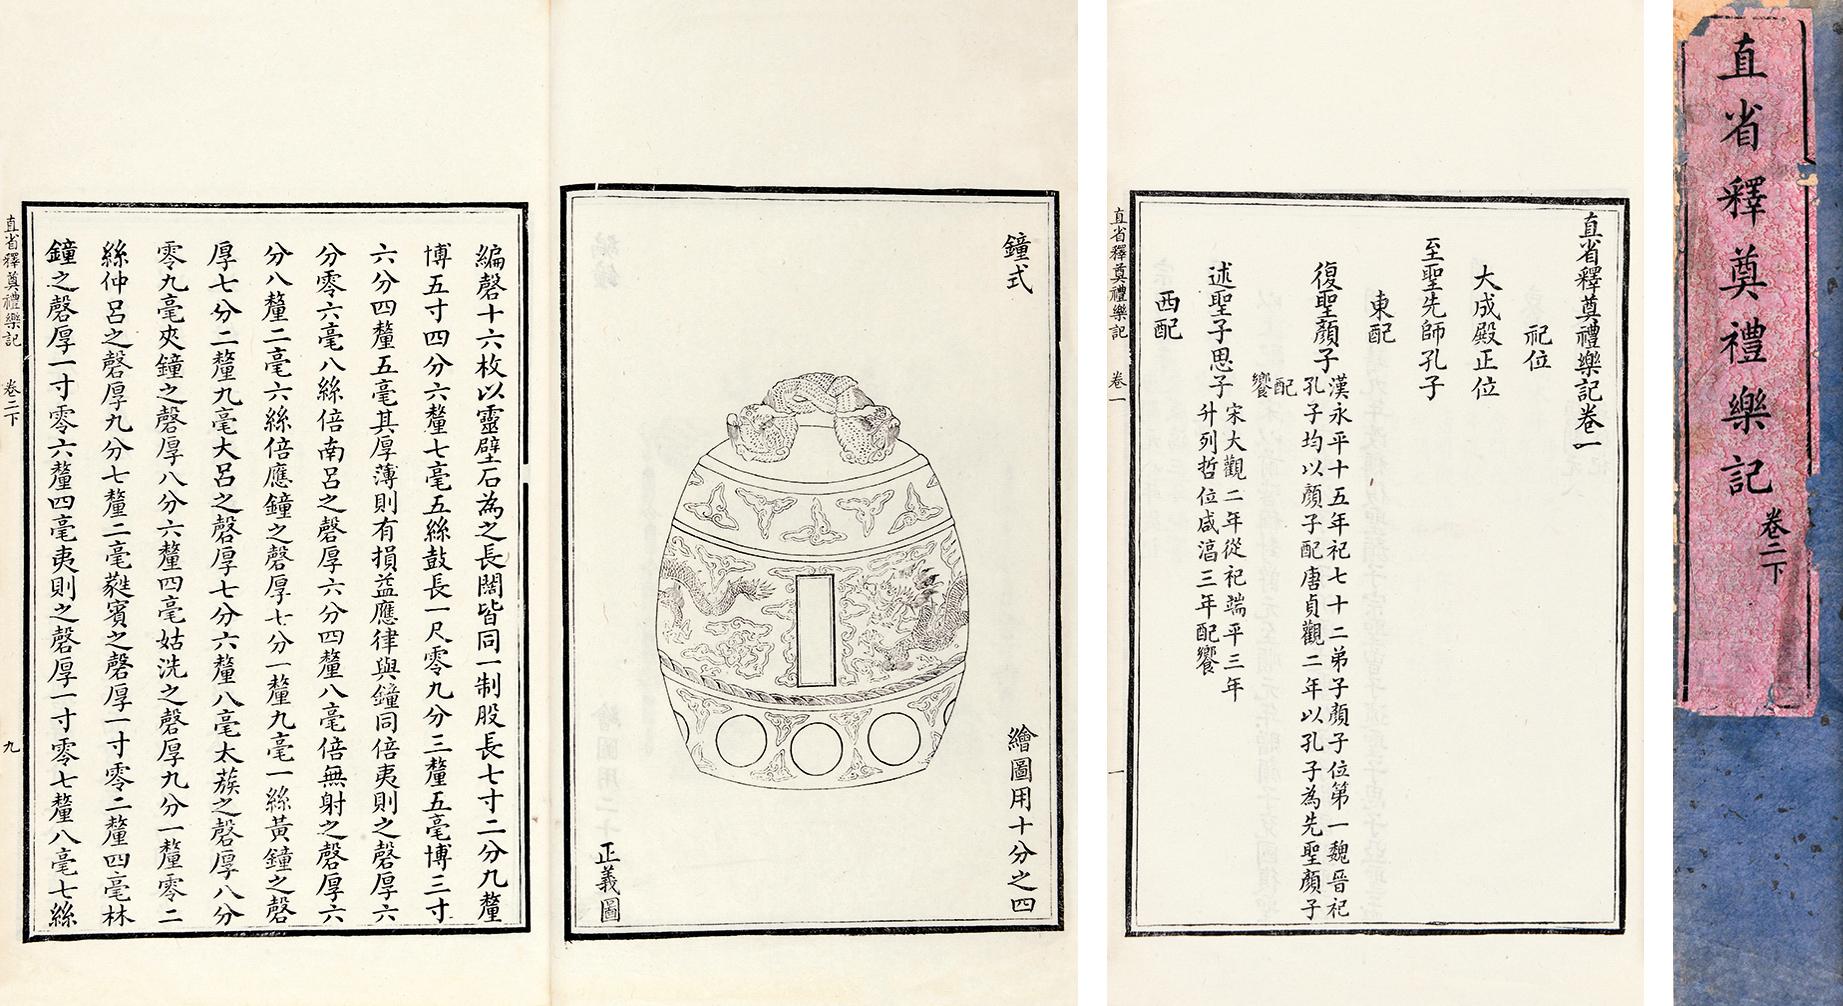 直省釋奠禮樂記
卷二下
直省釋奠禮樂記卷一
祀位
大成殿正位
至聖先師孔子
東配
復聖顏子
漢永平十五年祀七十二弟子顏子位第一魏晉祀
孔子均以顏子配唐貞觀二年以孔子為先聖顏子
配
饗
述聖子思子
宋大觀二年從祀端平三年
升列哲位咸淳三年配饗
西配
直省釋奠禮樂記
卷一
一
鐘式
繪圖用十分之四
正義圖
編磬十六枚以靈壁石為之長闊皆同一制股長七寸二分九釐
博五寸四分六釐七毫五絲鼓長一尺零九分三釐五毫博三寸
六分四釐五毫其厚薄則有損益應律與鐘同倍夷則之磬厚六
分零六毫八絲倍南呂之磬厚六分四釐八毫倍無射之磬厚六
分八釐二毫六絲倍應鐘之磬厚七分一釐九毫一絲黃鐘之磬
厚七分二釐九毫大呂之磬厚七分六釐八毫太蔟之磬厚八分
零九毫夾鐘之磬厚八分六釐四毫姑洗之磬厚九分一釐零二
絲仲呂之磬厚九分七釐二毫蕤賓之磬厚一寸零二釐四毫林
鐘之磬厚一寸零六釐四毫夷則之磬厚一寸零七釐八毫七絲
直省釋奠禮樂記
卷二下
九